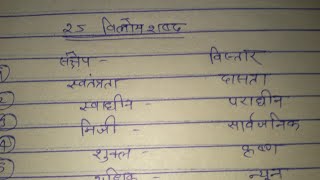 25 विलोम शब्द
संक्षेप - विस्तार
स्वतंत्रता दासता
2 स्वाधीन - पराधीन
3 मिजी - सार्वजनिक
4 शुक्ल - कृष्ण
5 अधिक - न्यून